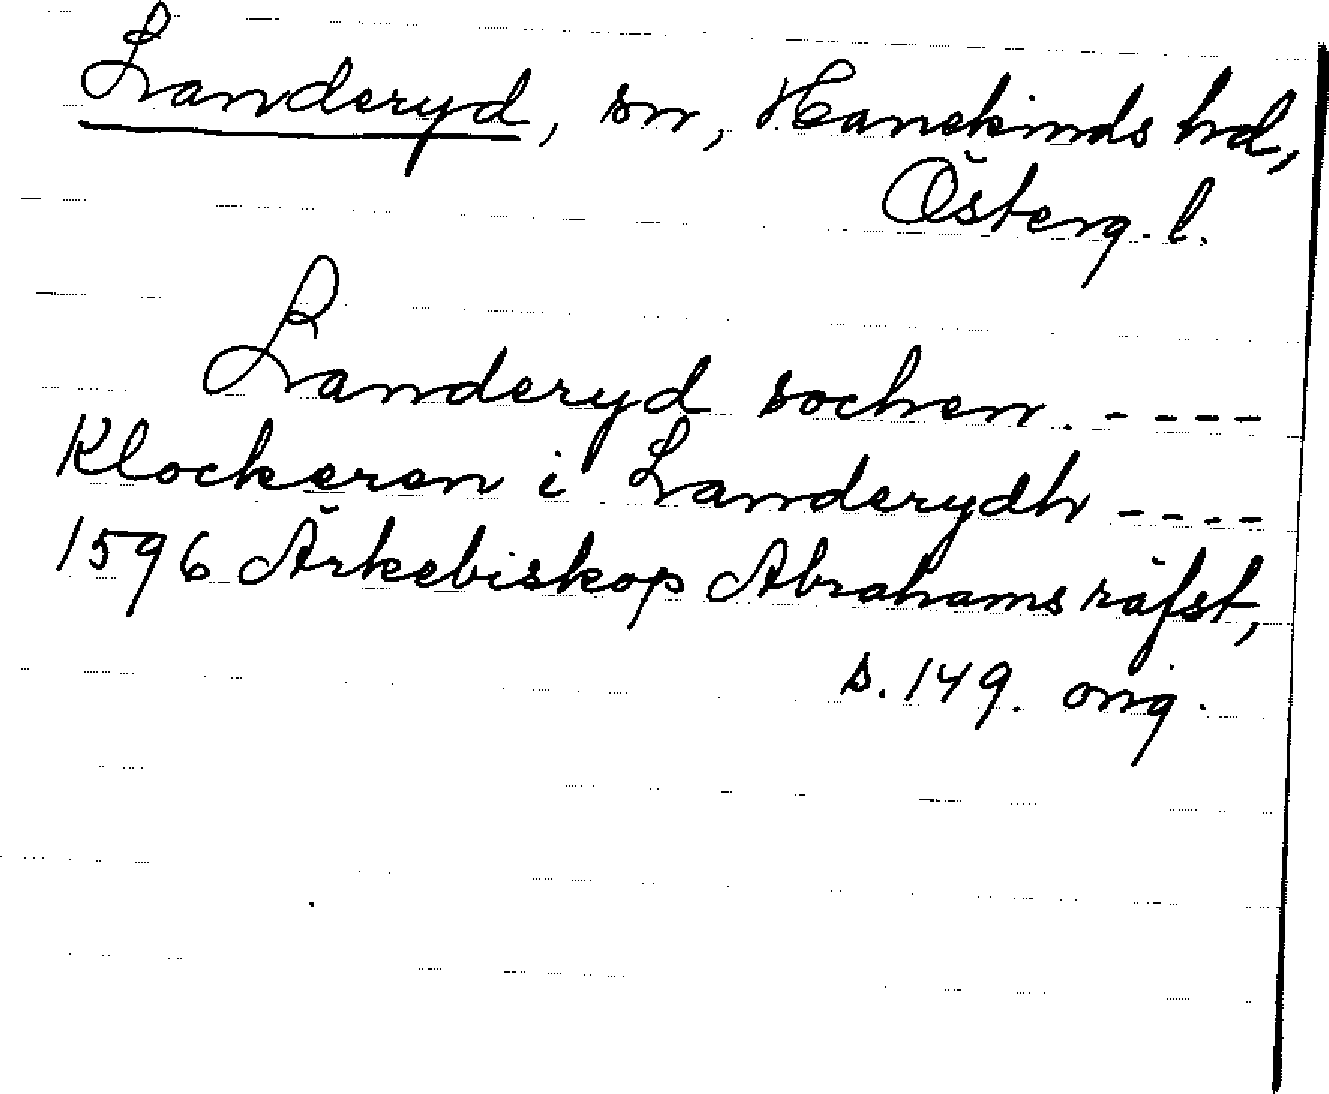 Landeryd, sn, Hanekinds hd,
Österg. l.
Landeryd sochen. - - - -
Klockeren i Landerydh - - - -
1596 Ärkebiskop Abrahams räfst,
s. 149. orig.